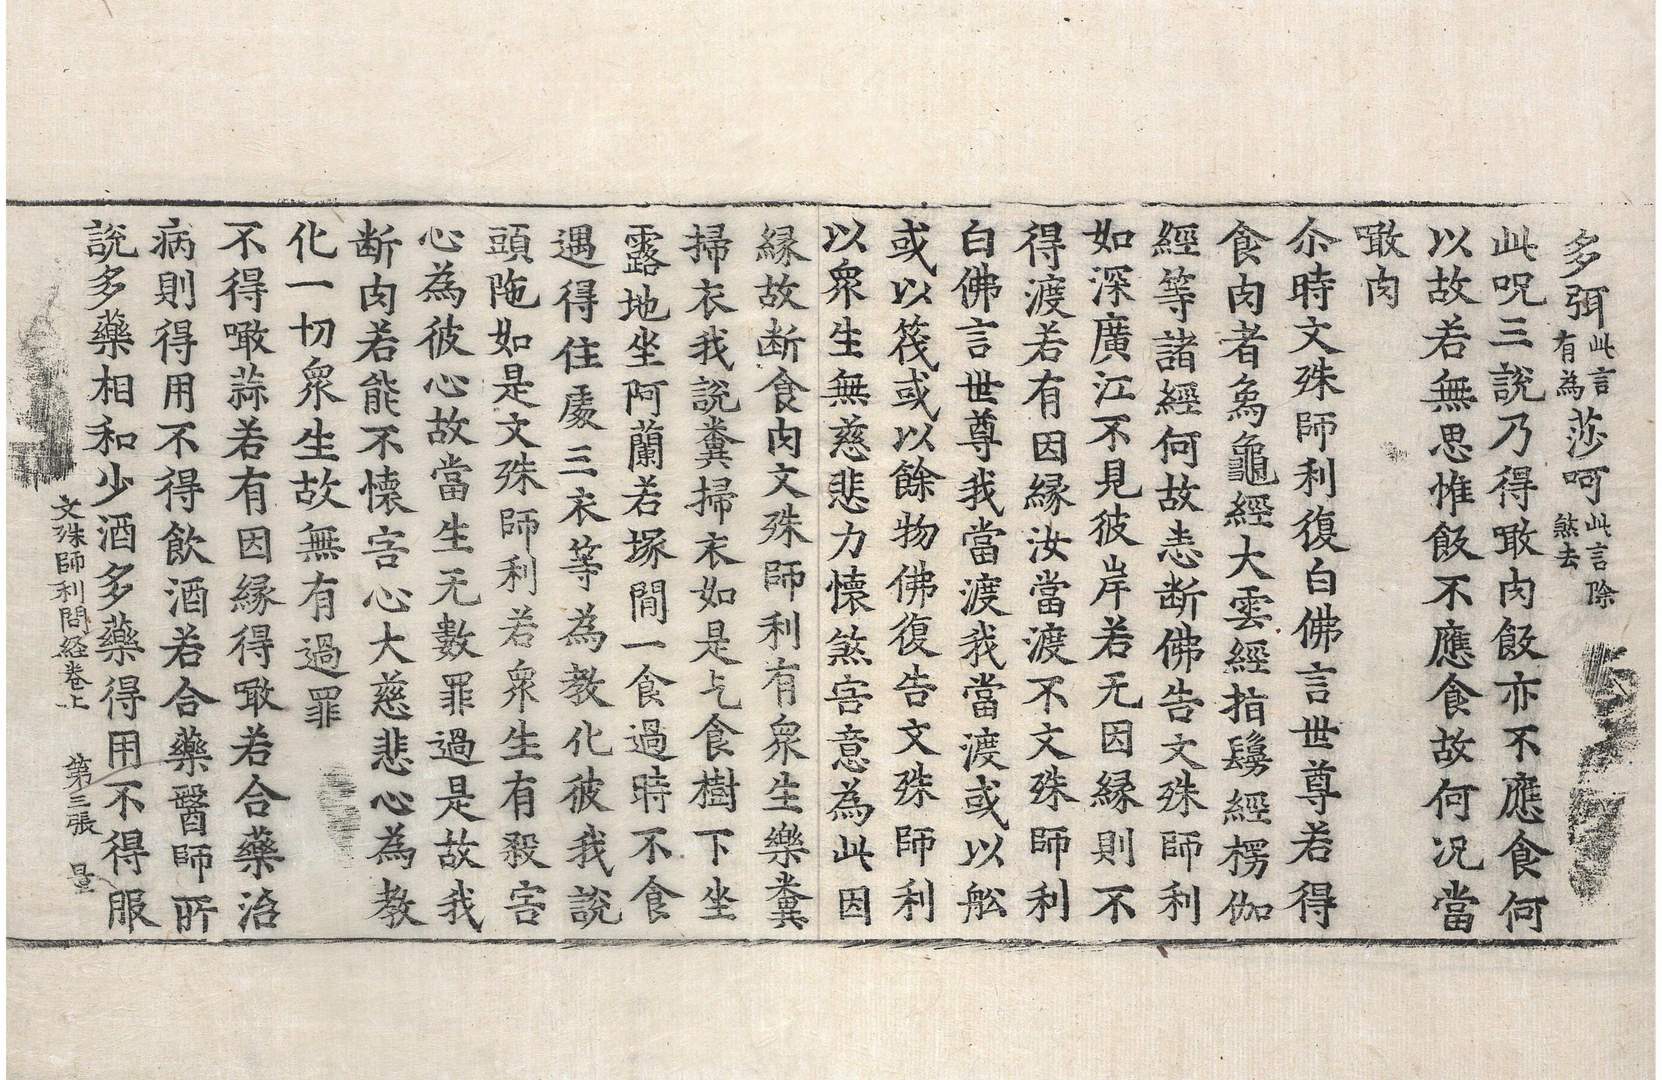 多弭此言有為莎呵此言除煞去
此呪三說乃得噉肉飯亦不應食何
以故若無思惟飯不應食故何况當
噉肉
尒時文殊師利復白佛言世尊若得
食肉者象龜經大雲經指鬘經楞伽
經等諸經何故悉断佛告文殊師利
如深廣江不見彼岸若无因緣則不
得渡若有因緣汝當渡不文殊師利
白佛言世尊我當渡我當渡或以舩
或以筏或以餘物佛復告文殊師利
以衆生無慈悲力懷煞害意為此因
緣故断食肉文殊師利有衆生樂糞
掃衣我說糞掃衣如是乞食樹下坐
露地坐阿蘭若塚間一食過時不食
遇得住處三衣等為教化彼我說
頭陁如是文殊師利若衆生有殺害
心為彼心故當生无數罪過是故我
断肉若能不懷害心大慈悲心為教
化一切衆生故無有過罪
不得噉蒜若有因緣得噉若合藥治
病則得用不得飲酒若合藥醫師所
說多藥相和少酒多藥得用不得服
文殊師利問經卷上 第三張 量